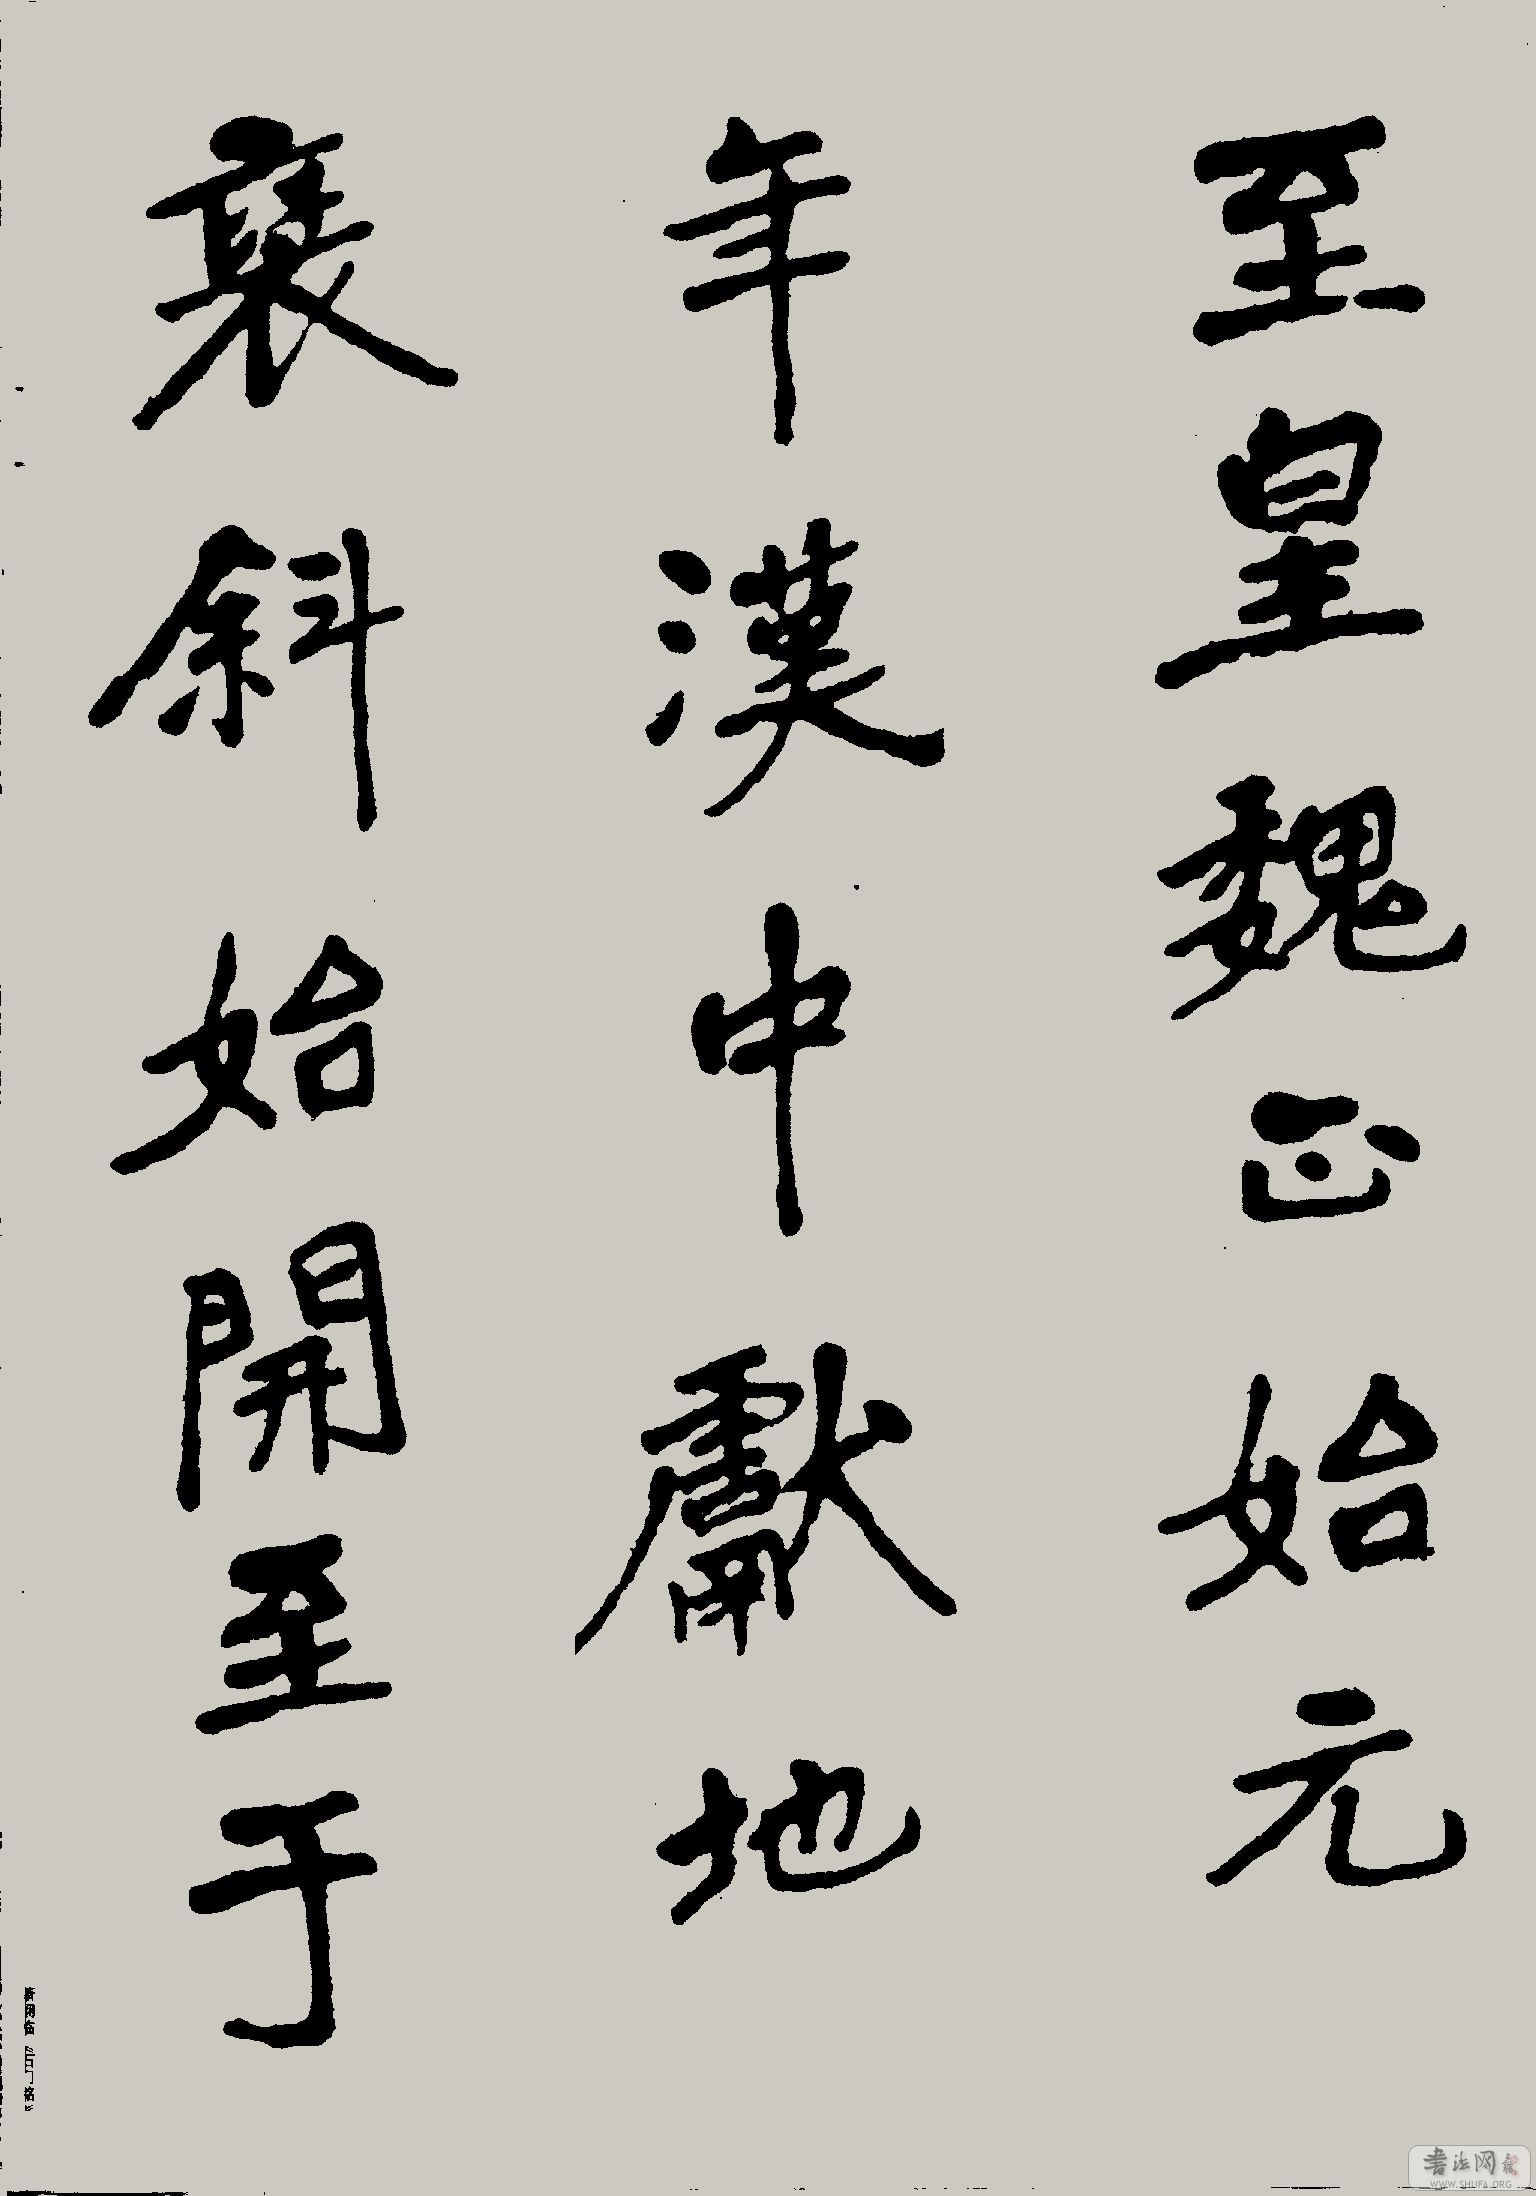 至皇魏正始元
年漢中獻地
褒斜始開至于
临《石门铭》
書法网
WWW.SHUFA.ORG